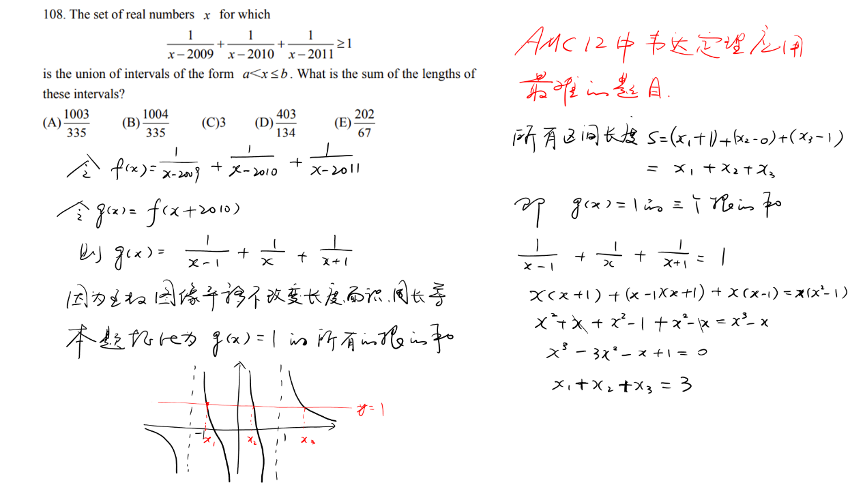 108. The set of real numbers x for which
1/(x−2009) + 1/(x−2010) + 1/(x−2011) ≥ 1
is the union of intervals of the form a<x≤b. What is the sum of the lengths of
these intervals?
(A) 1003/335 (B) 1004/335 (C)3 (D) 403/134 (E) 202/67
令 f(x)= 1/(x-2009) + 1/(x-2010) + 1/(x-2011)
令 g(x)= f(x+2010)
则 g(x)= 1/(x-1) + 1/x + 1/(x+1)
因为 图像平移不改变长度.面积.周长等
本题 为 g(x)=1 的所有的根的和
y=1
-1 x₁ x₂ 1 x₃
AMC 12中韦达定理应用
最难的题目.
所有区间长度 S=(x₁+1)+(x₂-0)+(x₃-1)
= x₁+x₂+x₃
即 g(x)=1的三个根的和
1/(x-1) + 1/x + 1/(x+1) = 1
x(x+1)+(x-1)(x+1)+x(x-1)=x(x²-1)
x²+x+x²-1+x²-x=x³-x
x³-3x²-x+1=0
x₁+x₂+x₃=3